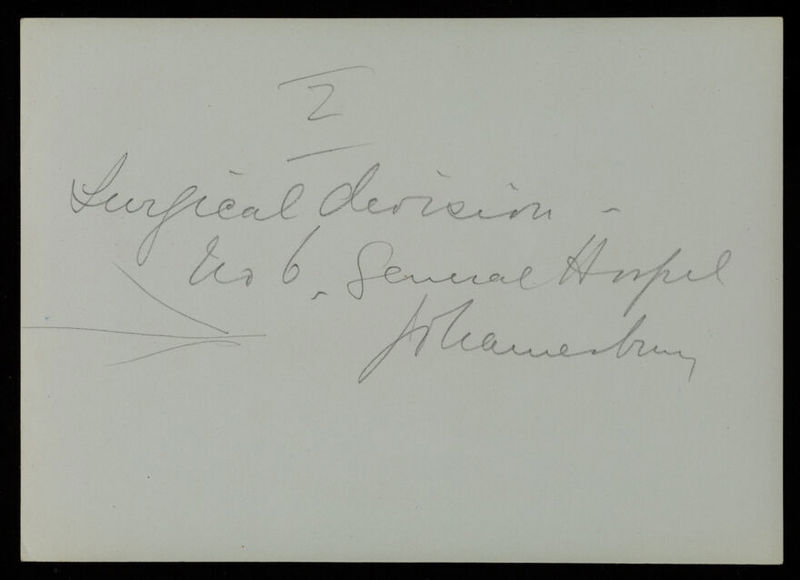 I
2
Surgical division -
No 6. General Hospil
Johannesburg